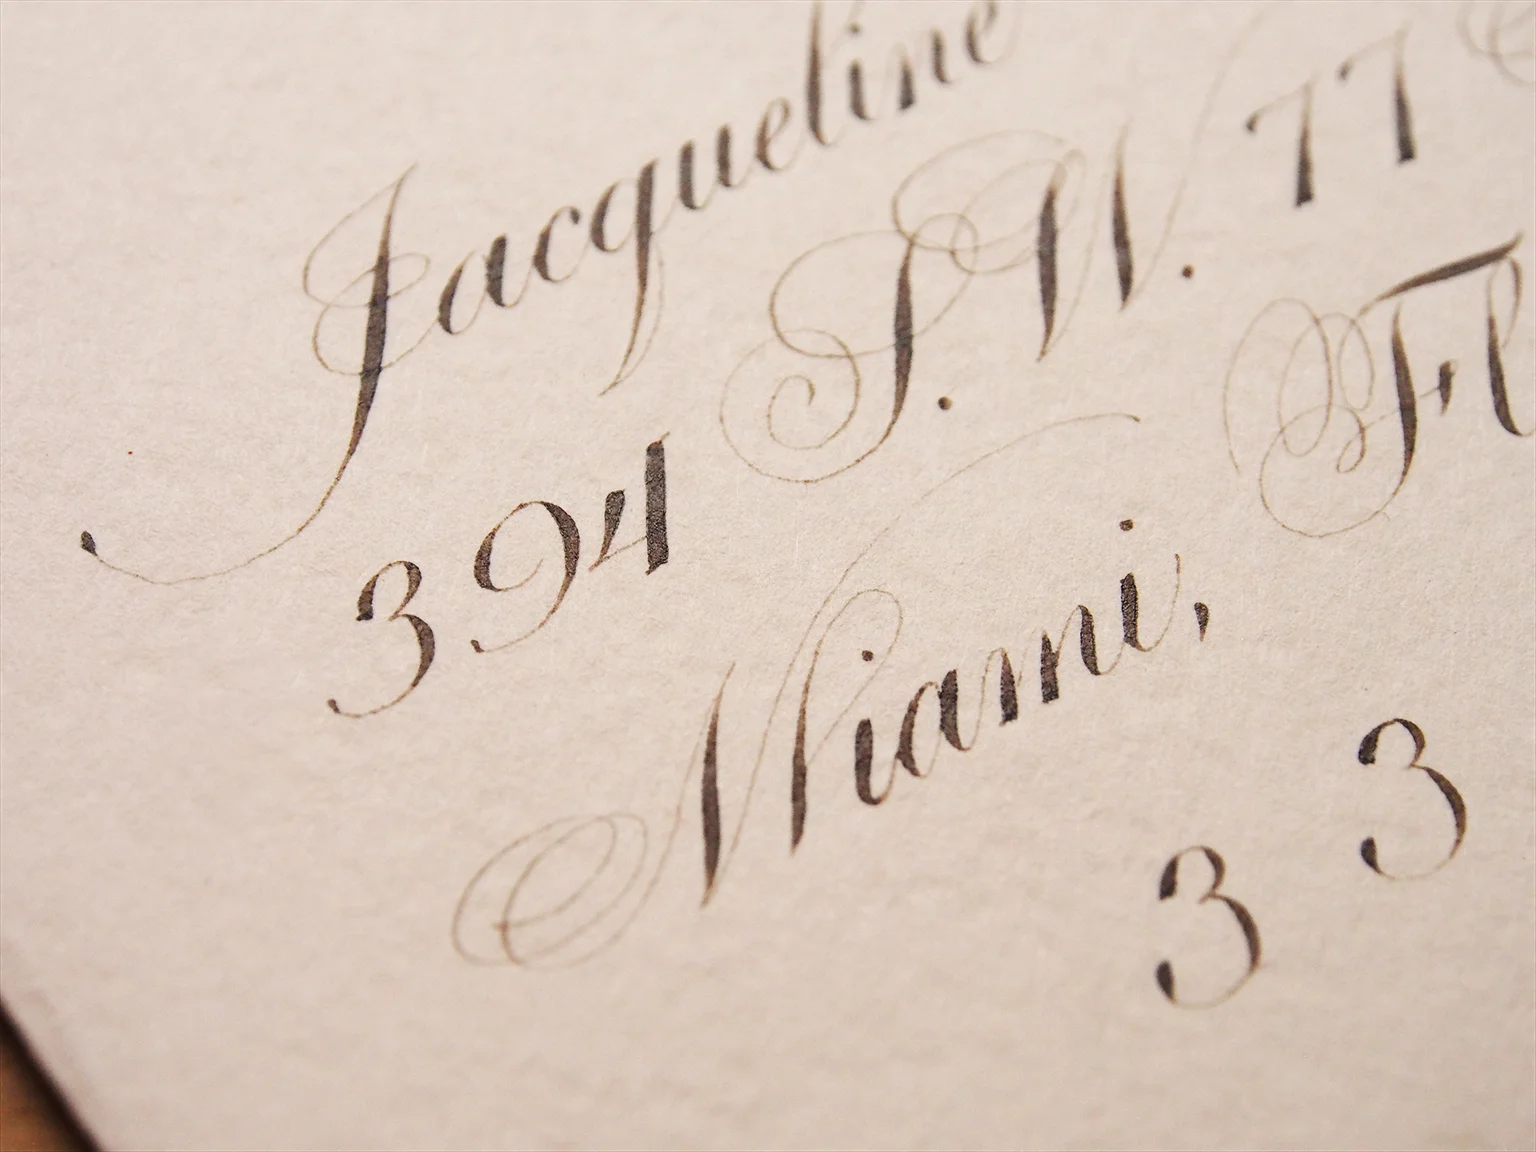 Jacqueline
394 S.W. 77
Miami, Fl
33